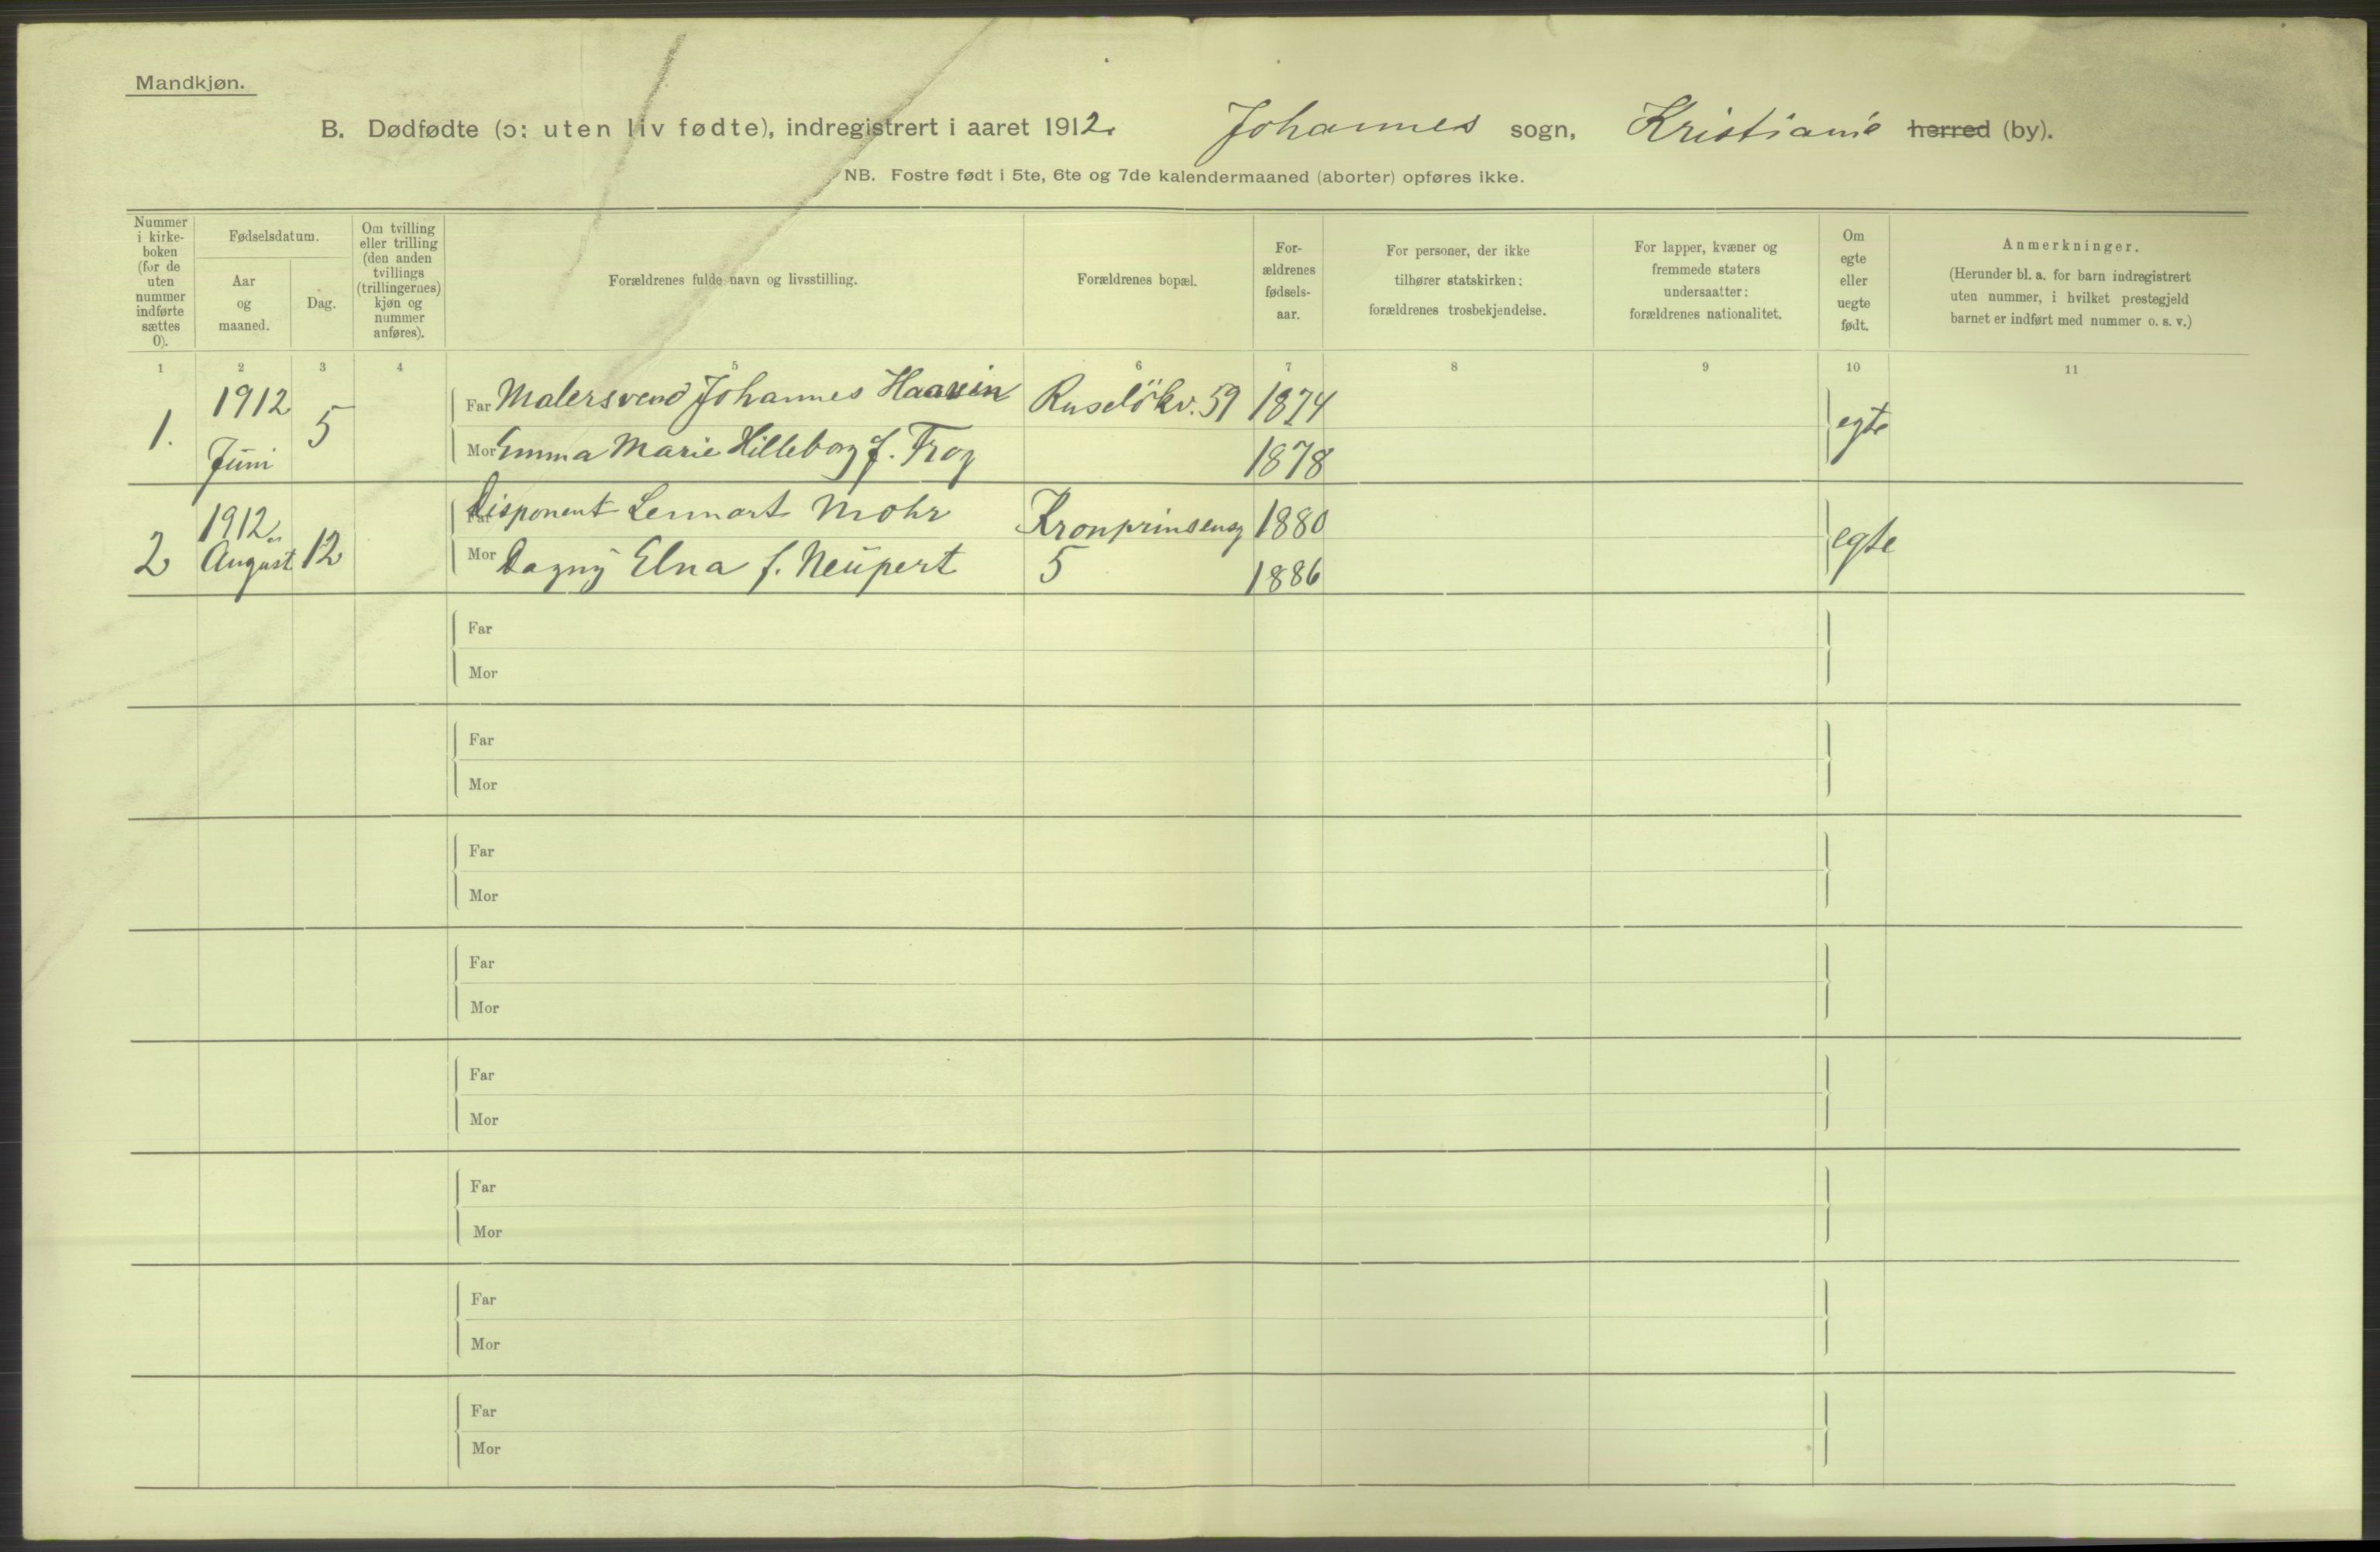 Mandkjøn.
B. Dødfødte (ɔ: uten liv fødte), indregistrert i aaret 1912. Johannes sogn, Kristiania herred (by).
NB. Fostre født i 5te, 6te og 7de kalendermaaned (aborter) opføres ikke.
Nummer i kirke-boken (for de uten nummer indførte sættes 0).
Fødselsdatum.
Aar og maaned.
Dag.
Om tvilling eller trilling (den anden tvillings (trillingernes) kjøn og nummer anføres).
Forældrenes fulde navn og livsstilling.
Forældrenes bopæl.
For-ældrenes fødsels-aar.
For personer, der ikke tilhører statskirken: forældrenes trosbekjendelse.
For lapper, kvæner og fremmede staters undersaatter: forældrenes nationalitet.
Om egte eller uegte født.
Anmerkninger.
(Herunder bl. a. for barn indregistrert uten nummer, i hvilket prestegjeld barnet er indført med nummer o. s. v.)
1 2 3 4 5 6 7 8 9 10 11
1. 1912 Juni 5
Far Malersvend Johannes Haavin Ruselökv. 59 1874
Mor Emma Marie Hilleborg f. Frog 1878
egte
2 1912 August 12
Far Disponent Lennart Mohr Kronprinseng 1880
Mor Dagny Elna f. Neupert 5 1886
egte
Far
Mor
Far
Mor
Far
Mor
Far
Mor
Far
Mor
Far
Mor
Far
Mor
Far
Mor